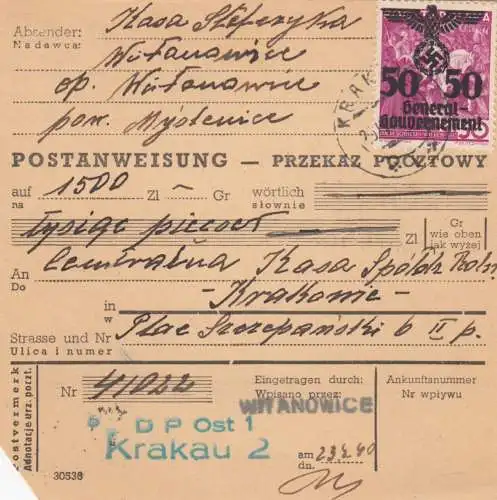 Absender: Kasa Stefczyka
Nadawca:
Witanowice
op. Witanowice
pow. Myślenice
50 50
General-
Gouvernement
50
KRAK
POSTANWEISUNG — PRZEKAZ POCZTOWY
auf 1500 Zl — Gr wörtlich
na słownie
tysiąc pięćset Zl Gr
wie oben
jak wyżej
An Centralna Kasa Spółdz. Roln.
Do
in — Krakowie —
w
Strasse und Nr Plac Szczepański 6 II p.
Ulica i numer
Postvermerk
Adnotacje urz. poczt.
Nr 41022
Eingetragen durch:
Wpisano przez:
WITANOWICE
Ankunftsnummer
Nr wpływu
D P Ost 1
Krakau 2
am 23.4.40
dn.
30536